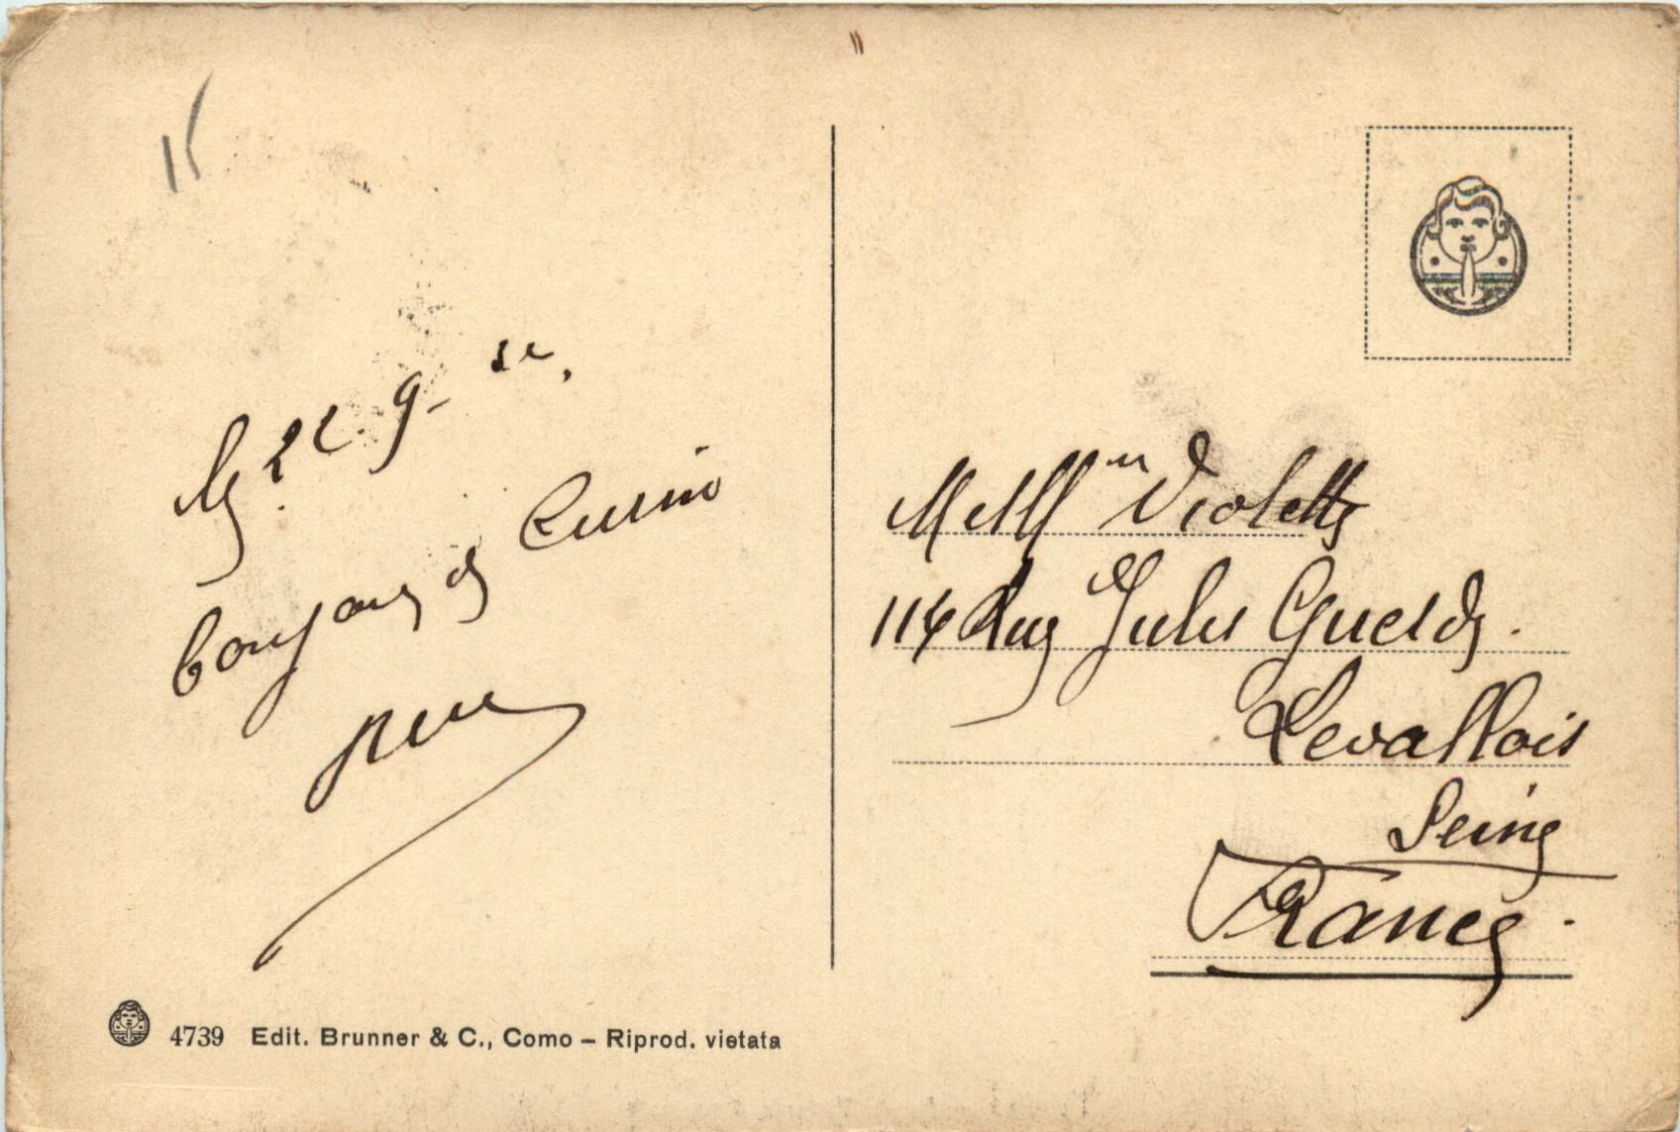 15
le 22. 9-
bonjour de Turin
Melle Violette
114 Rue Jules Guesde.
Levallois
Seine
France.
4739 Edit. Brunner & C., Como – Riprod. vietata